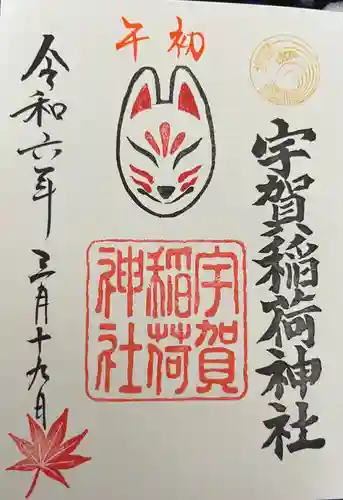 初午
宇賀稲荷神社
宇賀
稲荷
神社
令和六年三月十九日